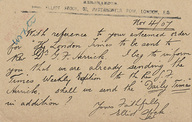 MEMORANDUM.
Nov 4/07
With reference to your esteemed order
for The London Times to be sent to
the Dr. J. F. Herrick I beg to inform
you that we are already sending the
Times Weekly Edition to the
Herrick, shall we send the Daily Times
in addition?
Yours faithfully